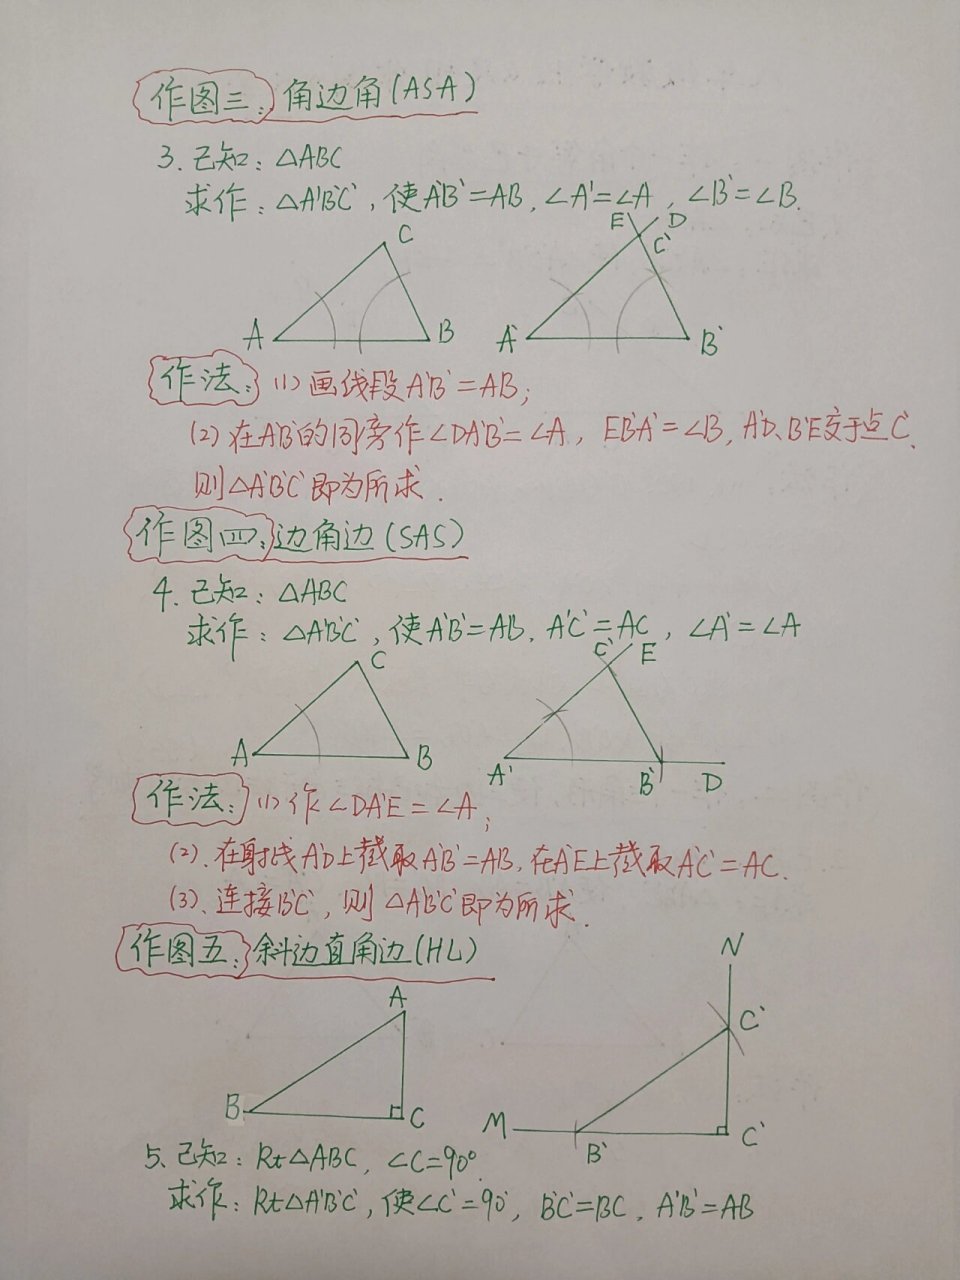 作图三：角边角(ASA)
3.已知：△ABC
求作：△A'B'C'，使A'B'=AB，∠A'=∠A，∠B'=∠B.
C E D C'
A B A' B'
作法：(1)画线段A'B'=AB；
(2)在A'B'的同旁作∠DA'B'=∠A，EB'A'=∠B，A'D、B'E交于点C'，
则△A'B'C'即为所求.
作图四：边角边(SAS)
4.已知：△ABC
求作：△A'B'C'，使A'B'=AB，A'C'=AC，∠A'=∠A
C C' E
A B A' B' D
作法：(1)作∠DA'E=∠A；
(2)、在射线A'D上截取A'B'=AB，在A'E上截取A'C'=AC.
(3)、连接B'C'，则△A'B'C'即为所求.
作图五：斜边直角边(HL)
A N C'
B C M B' C'
5、已知：Rt△ABC，∠C=90°.
求作：Rt△A'B'C'，使∠C'=90°，B'C'=BC，A'B'=AB